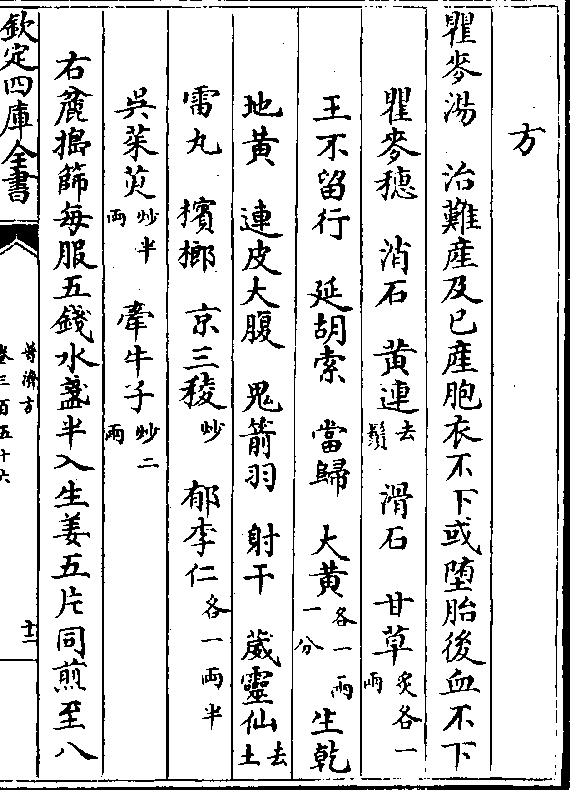 方
瞿麥湯　治難產及已產胞衣不下或墮胎後血不下
瞿麥穗　消石　黃連去鬚　滑石　甘草炙各一兩
王不留行　延胡索　當歸　大黃各一兩一分　生乾
地黃　連皮大腹　鬼箭羽　射干　葳靈仙去土
雷丸　檳榔　京三稜炒　郁李仁各一兩半
吳茱萸炒半兩　牽牛子炒二兩
右麄搗篩每服五錢水盞半入生姜五片同煎至八
欽定四庫全書
普濟方
卷三百五十六
十二